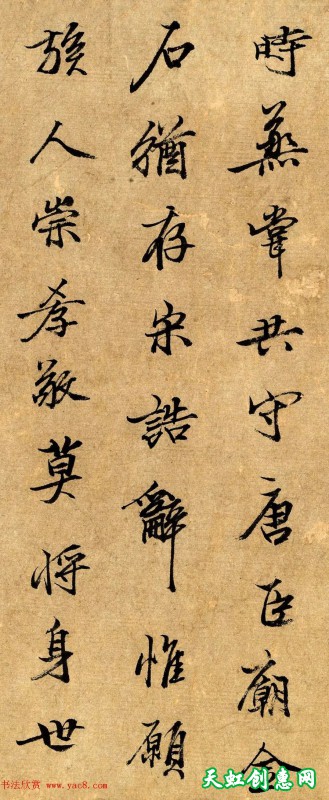 時蒸嘗共守唐臣廟金
石猶存宋誥辭惟願
族人崇孝敬莫將身世
书法欣赏 www.yac8.com
天虹创意网